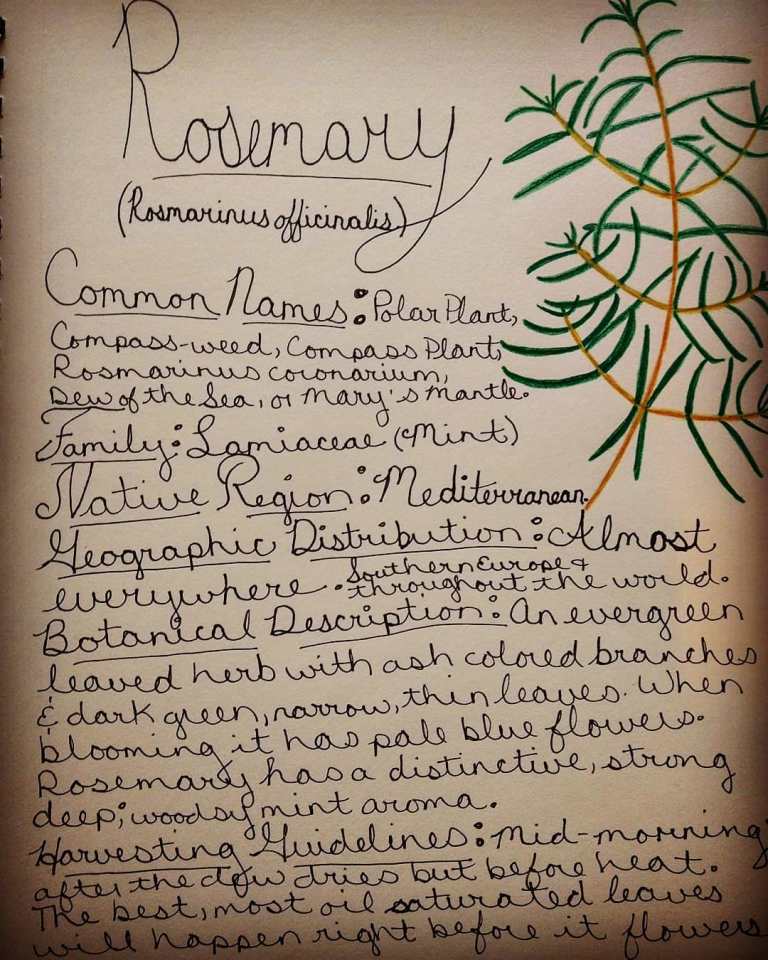 Rosemary
(Rosmarinus officinalis)
Common Names: Polar Plant,
Compass-weed, Compass Plant,
Rosmarinus coronarium,
Dew of the Sea, or Mary's mantle.
Family: Lamiaceae (Mint)
Native Region: Mediterranean.
Geographic Distribution: Almost
everywhere. Southern Europe &
throughout the world.
Botanical Description: An evergreen
leaved herb with ash colored branches
& dark green, narrow, thin leaves. When
blooming it has pale blue flowers.
Rosemary has a distinctive, strong
deep; woodsy mint aroma.
Harvesting Guidelines: Mid-morning
after the dew dries but before heat.
The best, most oil saturated leaves
will happen right before it flowers